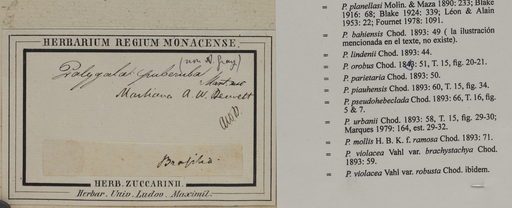 HERBARIUM REGIUM MONACENSE.
(non A. Gray)
Polygala puberula
Mart. mss
Martiana A. W. Bennett
AWB.
Brasilia.
HERB. ZUCCARINII.
Herbar. Univ. Ludov. Maximil.
= P. planellasi Molin. & Maza 1890: 233; Blake
1916: 68; Blake 1924: 339; Léon & Alain
1953: 22; Fournet 1978: 1091.
= P. bahiensis Chod. 1893: 49 ( la ilustración
mencionada en el texto, no existe).
= P. lindenii Chod. 1893: 44.
= P. orobus Chod. : 51, T. 15, fig. 20-21.
= P. parietaria Chod. 1893: 50.
= P. piauhensis Chod. 1893: 60, T. 15, fig. 34.
= P. pseudohebeclada Chod. 1893: 66, T 16, fig.
5 & 7.
= P. urbanii Chod. 1893: 58, T. 15, fig. 29-30;
Marques 1979: 164, est. 29-32.
= P. mollis H. B. K. f. ramosa Chod. 1893: 71.
= P. violacea Vahl var. brachystachya Chod.
1893: 59.
= P. violacea Vahl var. robusta Chod. ibidem.